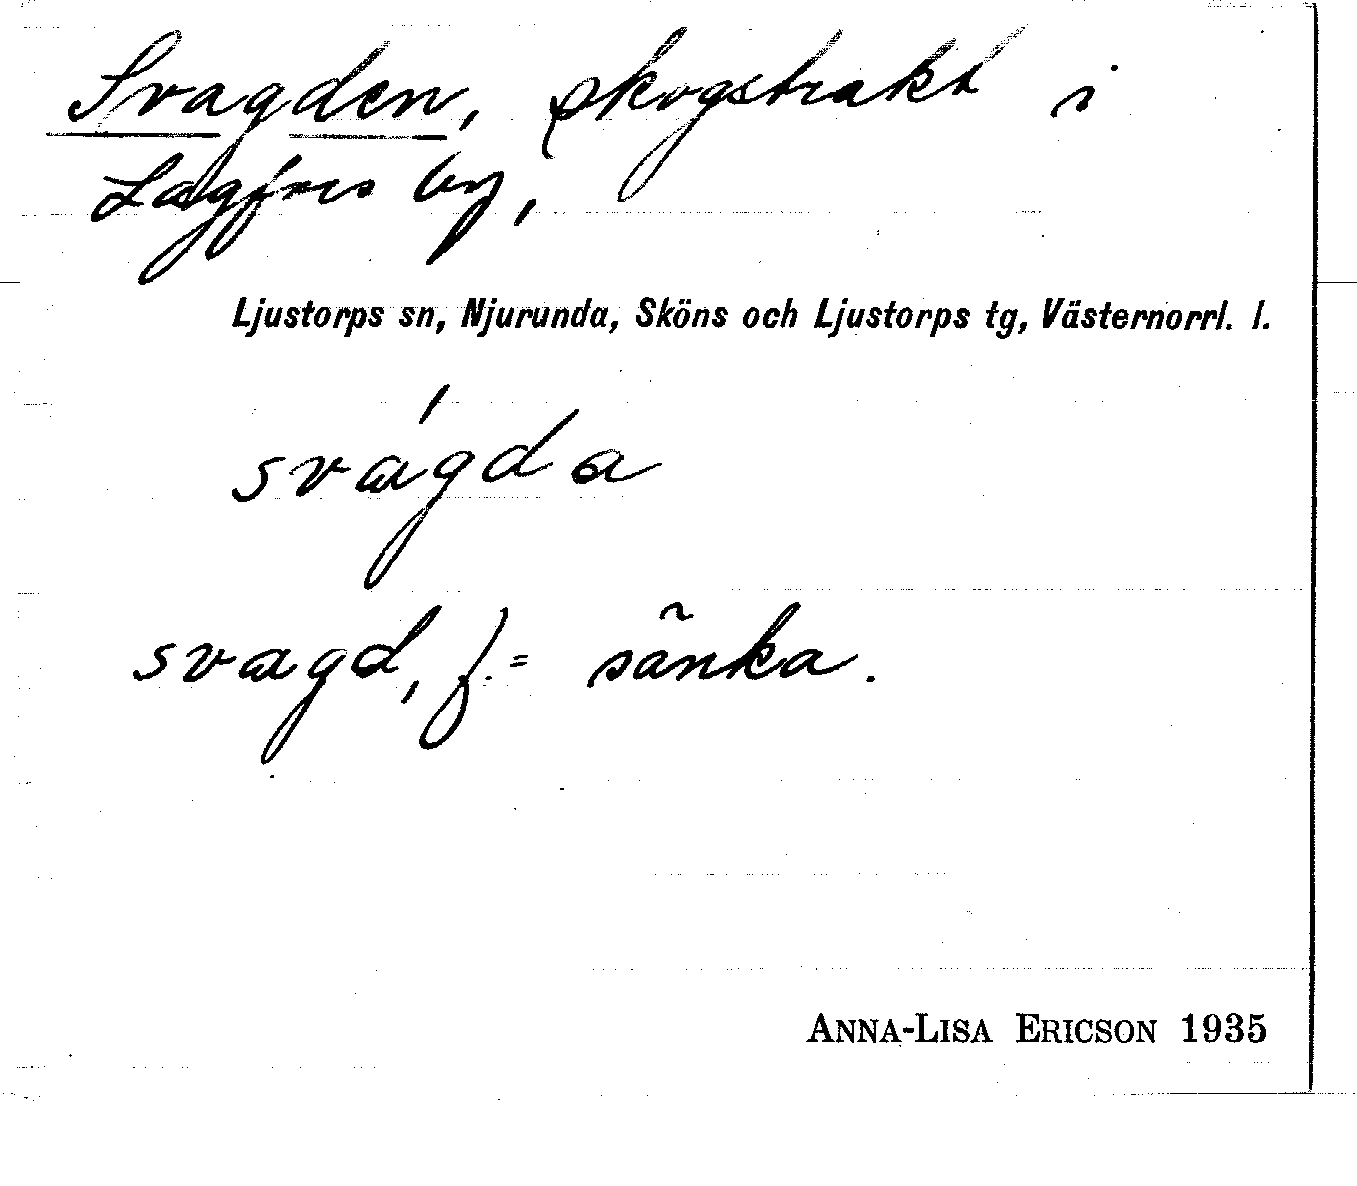 Svagden, skogstrakt i
Lagfors by,
Ljustorps sn, Njurunda, Sköns och Ljustorps tg, Västernorrl. l.
svágda
svagd, f. = sänka.
ANNA-LISA ERICSON 1935